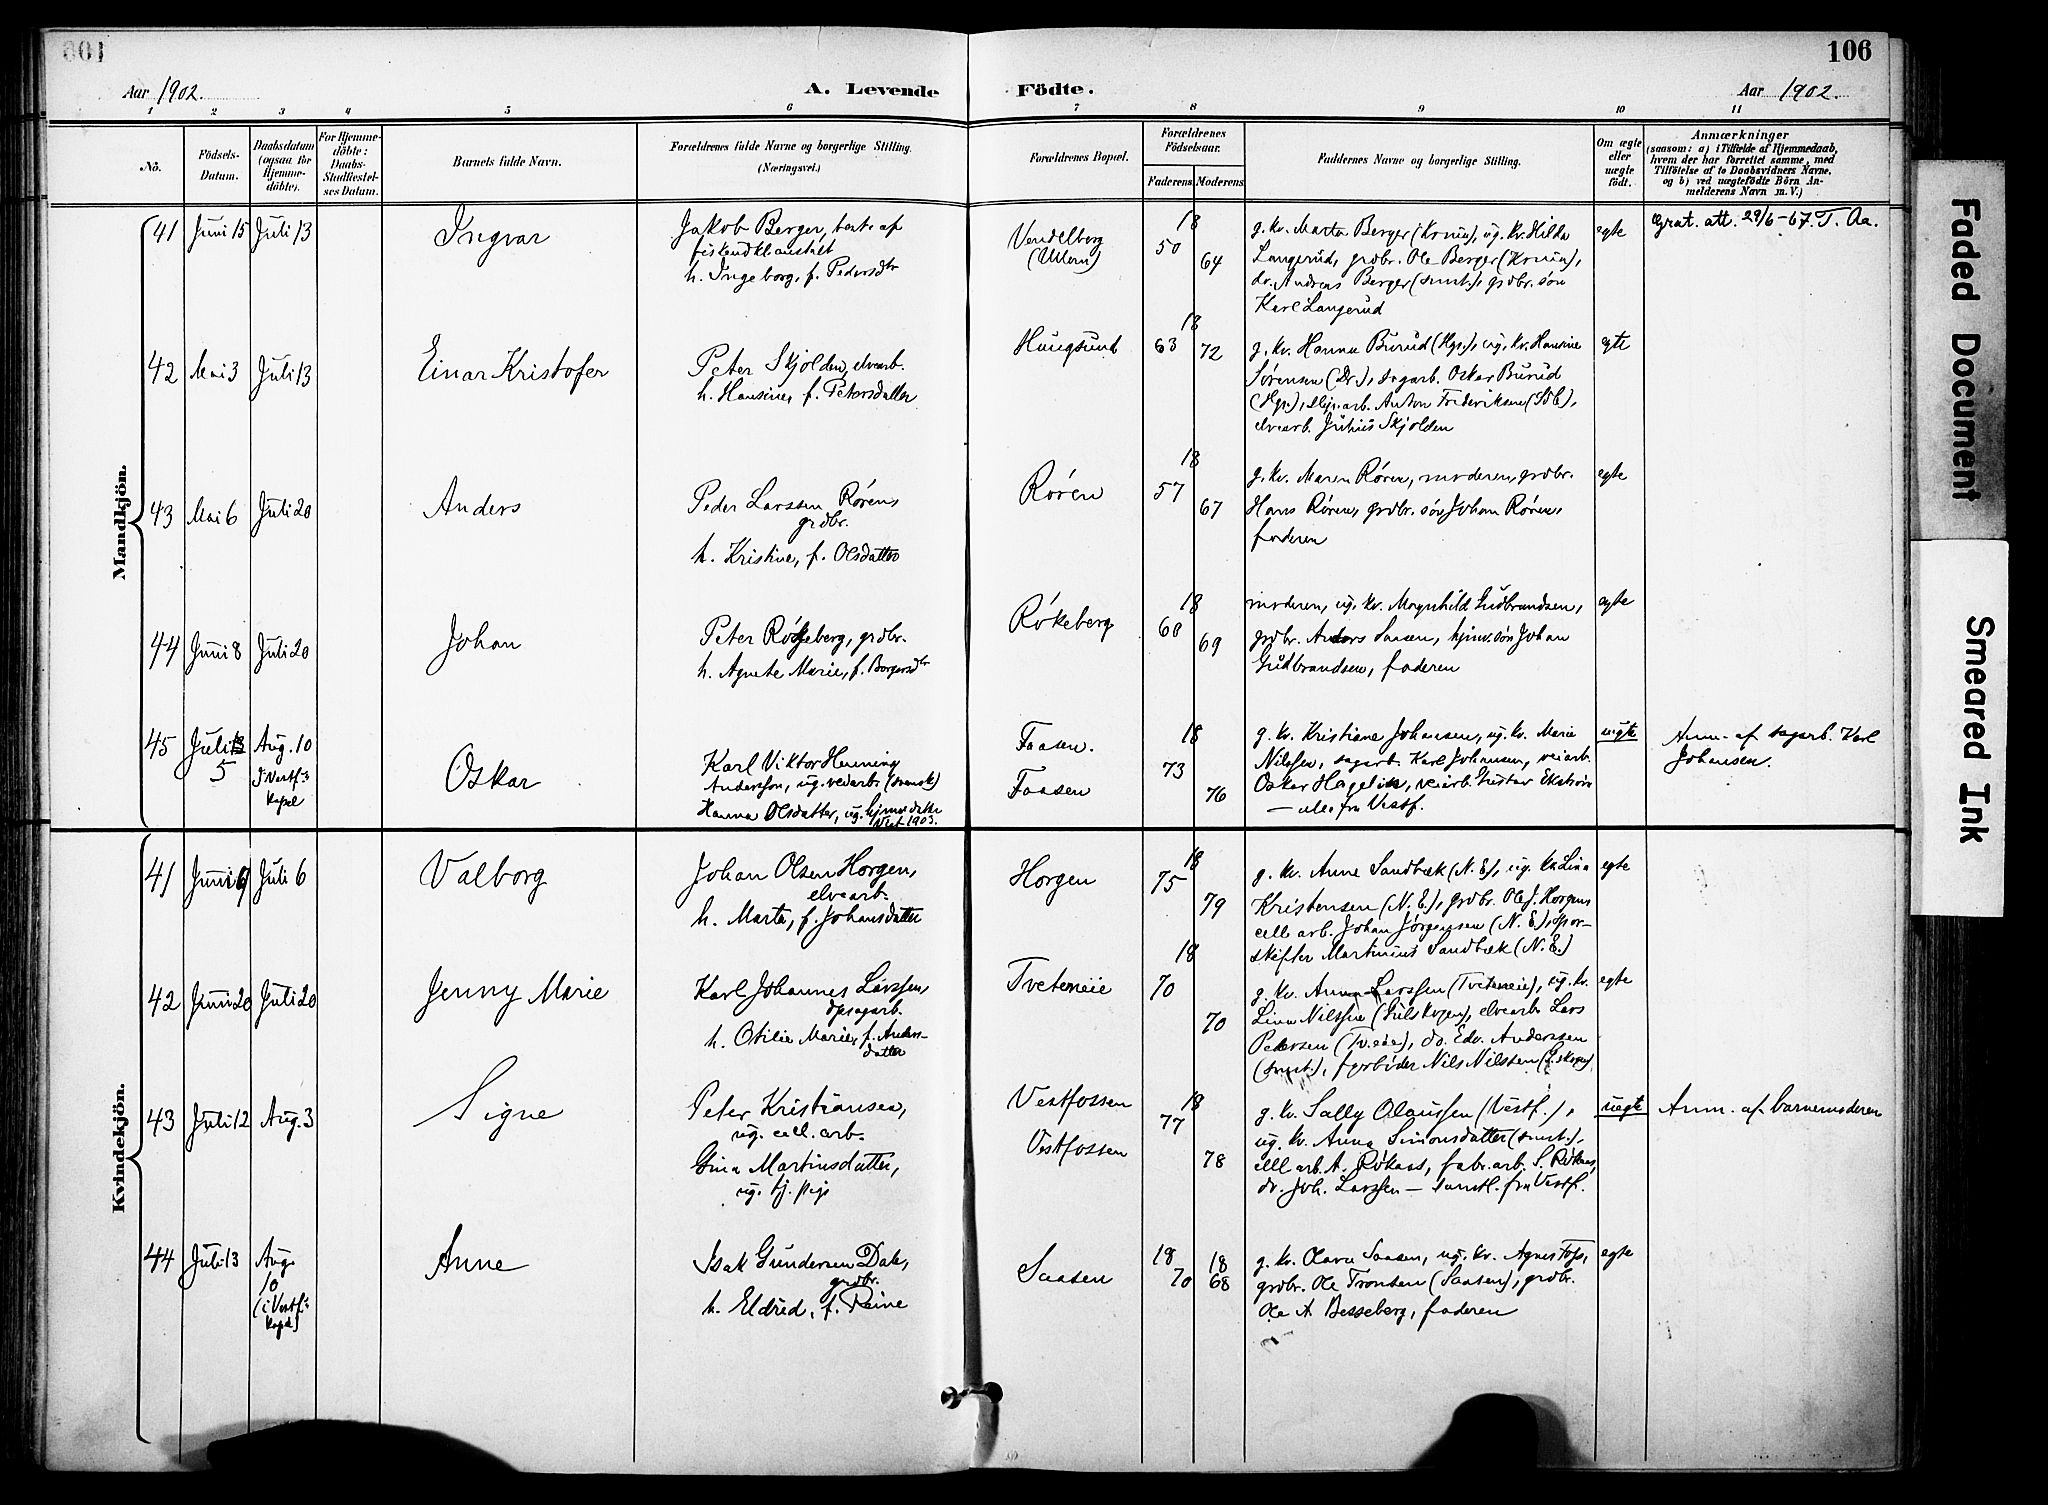 106
Aar 1902.
A. Levende Födte.
Aar 1902.
1 2 3 4 5 6 7 8 9 10 11
No.
Födsels-
Datum.
Daabsdatum
(ogsaa for
Hjemme-
döbte).
For Hjemme-
döbte:
Daabs-
Stadfæstel-
ses Datum.
Barnets fulde Navn.
Forældrenes fulde Navne og borgerlige Stilling.
(Næringsvei.)
Forældrenes Bopæl.
Forældrenes
Födselsaar.
Faderens Moderens
Faddernes Navne og borgerlige Stilling.
Om ægte
eller
uægte
födt.
Anmærkninger
(saasom: a) i Tilfælde af Hjemmedaab,
hvem der har forrettet samme, med
Tilföielse af to Daabsvidners Navne,
og b) ved uægtefödte Börn An-
melderens Navn m. V.)
Mandkjön.
41 Juni 15 Juli 13
Ingvar
Jakob Berger, best. af
h. Ingeborg, f. Pedersdtr
Vendelborg
18
50
64
g. kv. Marta Berger (Krnia), ug. kv. Hilda
Langerud, grdbr. Ole Berger (Krnia),
do. Andreas Berger (smst.), grdbr. søn
Karl Langerud
egte
Grat. att. 29/6-67. T. Aa.
42 Mai 3 Juli 13
Einar Kristofer
Peter Skjolden, elvearb.
h. Hansine, f. Petersdatter
Haugsund
18
63
72
g. kv. Hanna Burud (Hgs.), ug. kv. Hansine
Sørensen (Dr.), sagarb. Oskar Burud
(Hgs.), slip. arb. Anton Frederiksen
elvearb. Julius Skjolden
egte
43 Mai 6 Juli 20
Anders
Peder Larssen Røren,
grdbr.
h. Kristine, f. Olsdatter
Røren
18
57
67
g. kv. Maren Røren, moderen, grdbr.
Hans Røren, grdbr. søn Johan Røren,
faderen
egte
44 Juni 8 Juli 20
Johan
Peter Røkeberg, grdbr.
h. Agnete Marie, f. Borgersdtr
Røkeberg
18
60
69
moderen, ug. kv. Magnhild Gudbrandsen,
grdbr. Anders Saasen, hjmv. søn Johan
Gudbrandsen, faderen
egte
45 Juli 5 Aug. 10
i Vestf:s
Kapel
Oskar
Karl Viktor Henning
Andersson, ug. veiarb. (svensk)
Hanna Olsdatter, ug.
Faasen.
Faasen
18
73
76
g. kv. Kristiane Johansen, ug. kv. Marie
Nilssen, sagarb. Karl Johansen, veiarb.
Oskar Hagelin, veiarb. Gustav Ekstrøm
— alle fra Vestf.
uegte
Anm. af sagarb. Karl
Johansen.
Kvindekjön.
41 Juni 6 Juli 6
Valborg
Johan Olsen Horgen,
elvearb.
h. Marta, f. Johansdatter
Horgen
18
75
79
g. kv. Anne Sandbæk (N. E), ug. kv. Lina
Kristensen (N. E.), grdbr. Ole J. Horgen
cell. arb. Johan Jørgensen (N. E), spor-
skifter Martinius Sandbæk (N. E.)
egte
42 Juni 20 Juli 20
Jenny Marie
Karl Johannes Larssen,
dpsagarb.
h. Otilie Marie, f. Anders-
datter
Tveteneie
18
70
70
g. kv. Anna Larssen (Tveteneie), ug. kv.
Lina Nilssen (Gulskogen), elvearb. Lars
Petersen (Tv.eie), do. Edv. Anderssen
(smst.), fyrbøder Nils Nilssen (G. skogen)
egte
43 Juli 12 Aug. 3
Signe
Peter Kristiansen,
ug. cell. arb.
Gina Martinsdatter,
ug. tj. pige
Vestfossen
Vestfossen
18
77
78
g. kv. Sally Olaussen (Vestf.),
ug. kv. Anna Simonsdatter (smst.),
cell. arb. A. Røkaas, fabr. arb. S. Røkaas,
do. Joh. Larssen — samtl. fra Vestf.
uegte
Anm. af barnemoderen
44 Juli 13 Aug.
10
(i Vestf:s
Kapel)
Anne
Isak Gundersen Dale,
grdbr.
h. Eldrid, f. Reine
Saasen
18 18
70 68
g. kv. Olava Saasen, ug. kv. Agnes Foss,
grdbr. Ole Tronsen (Saasen), grdbr.
Ole A. Besseberg, faderen
egte
Faded Document
Smeared Ink